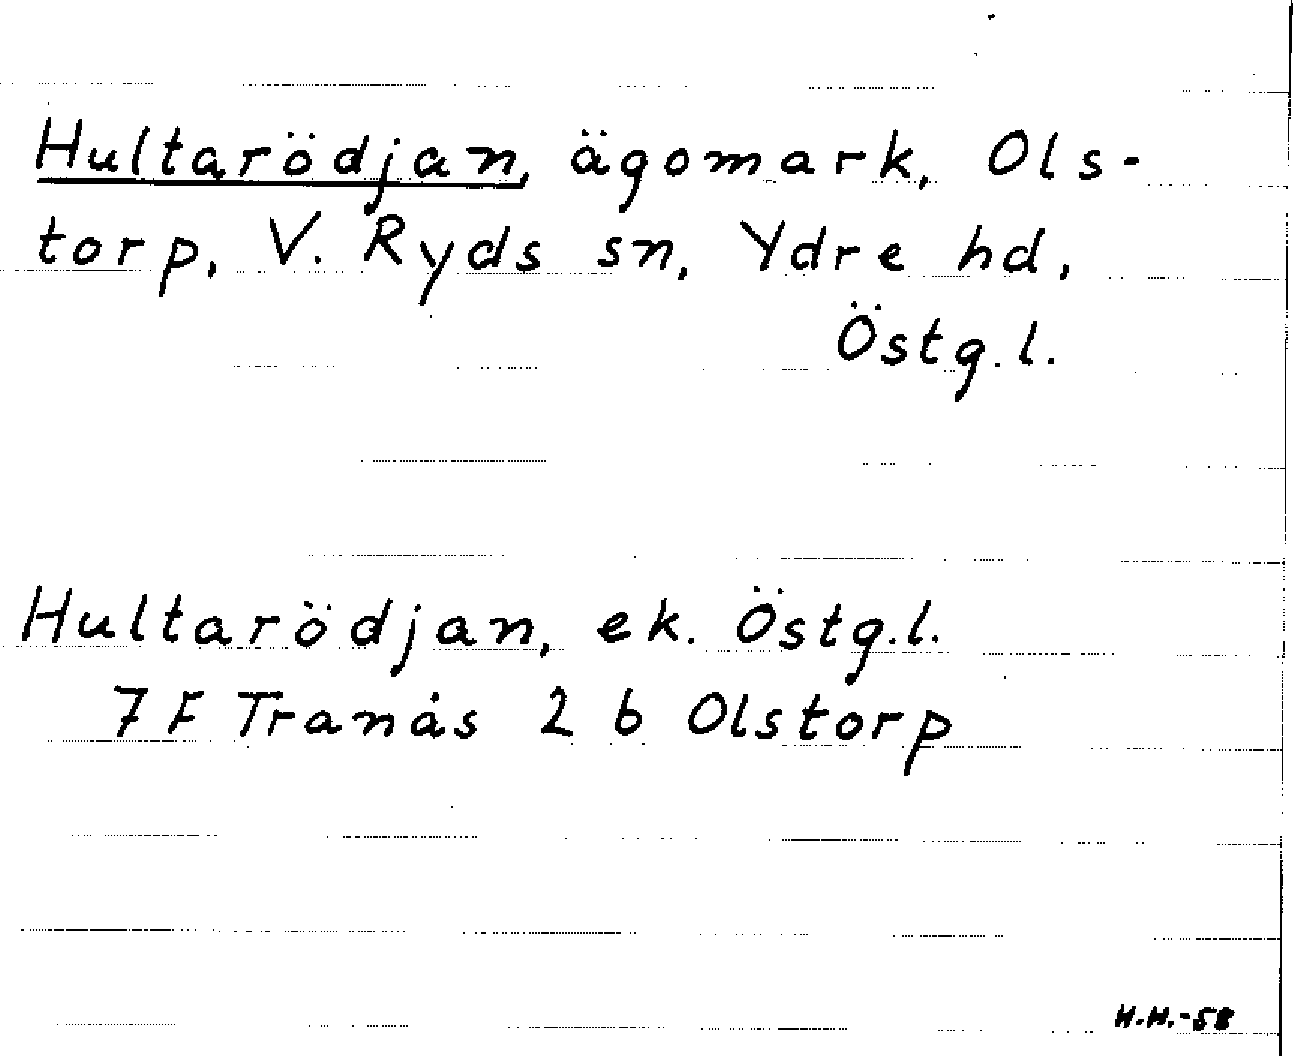 Hultarödjan, ägomark, Ols-
torp, V. Ryds sn, Ydre hd,
Östg.l.
Hultarödjan, ek. Östg.l.
7 F Tranås 2 b Olstorp
H.H.-58